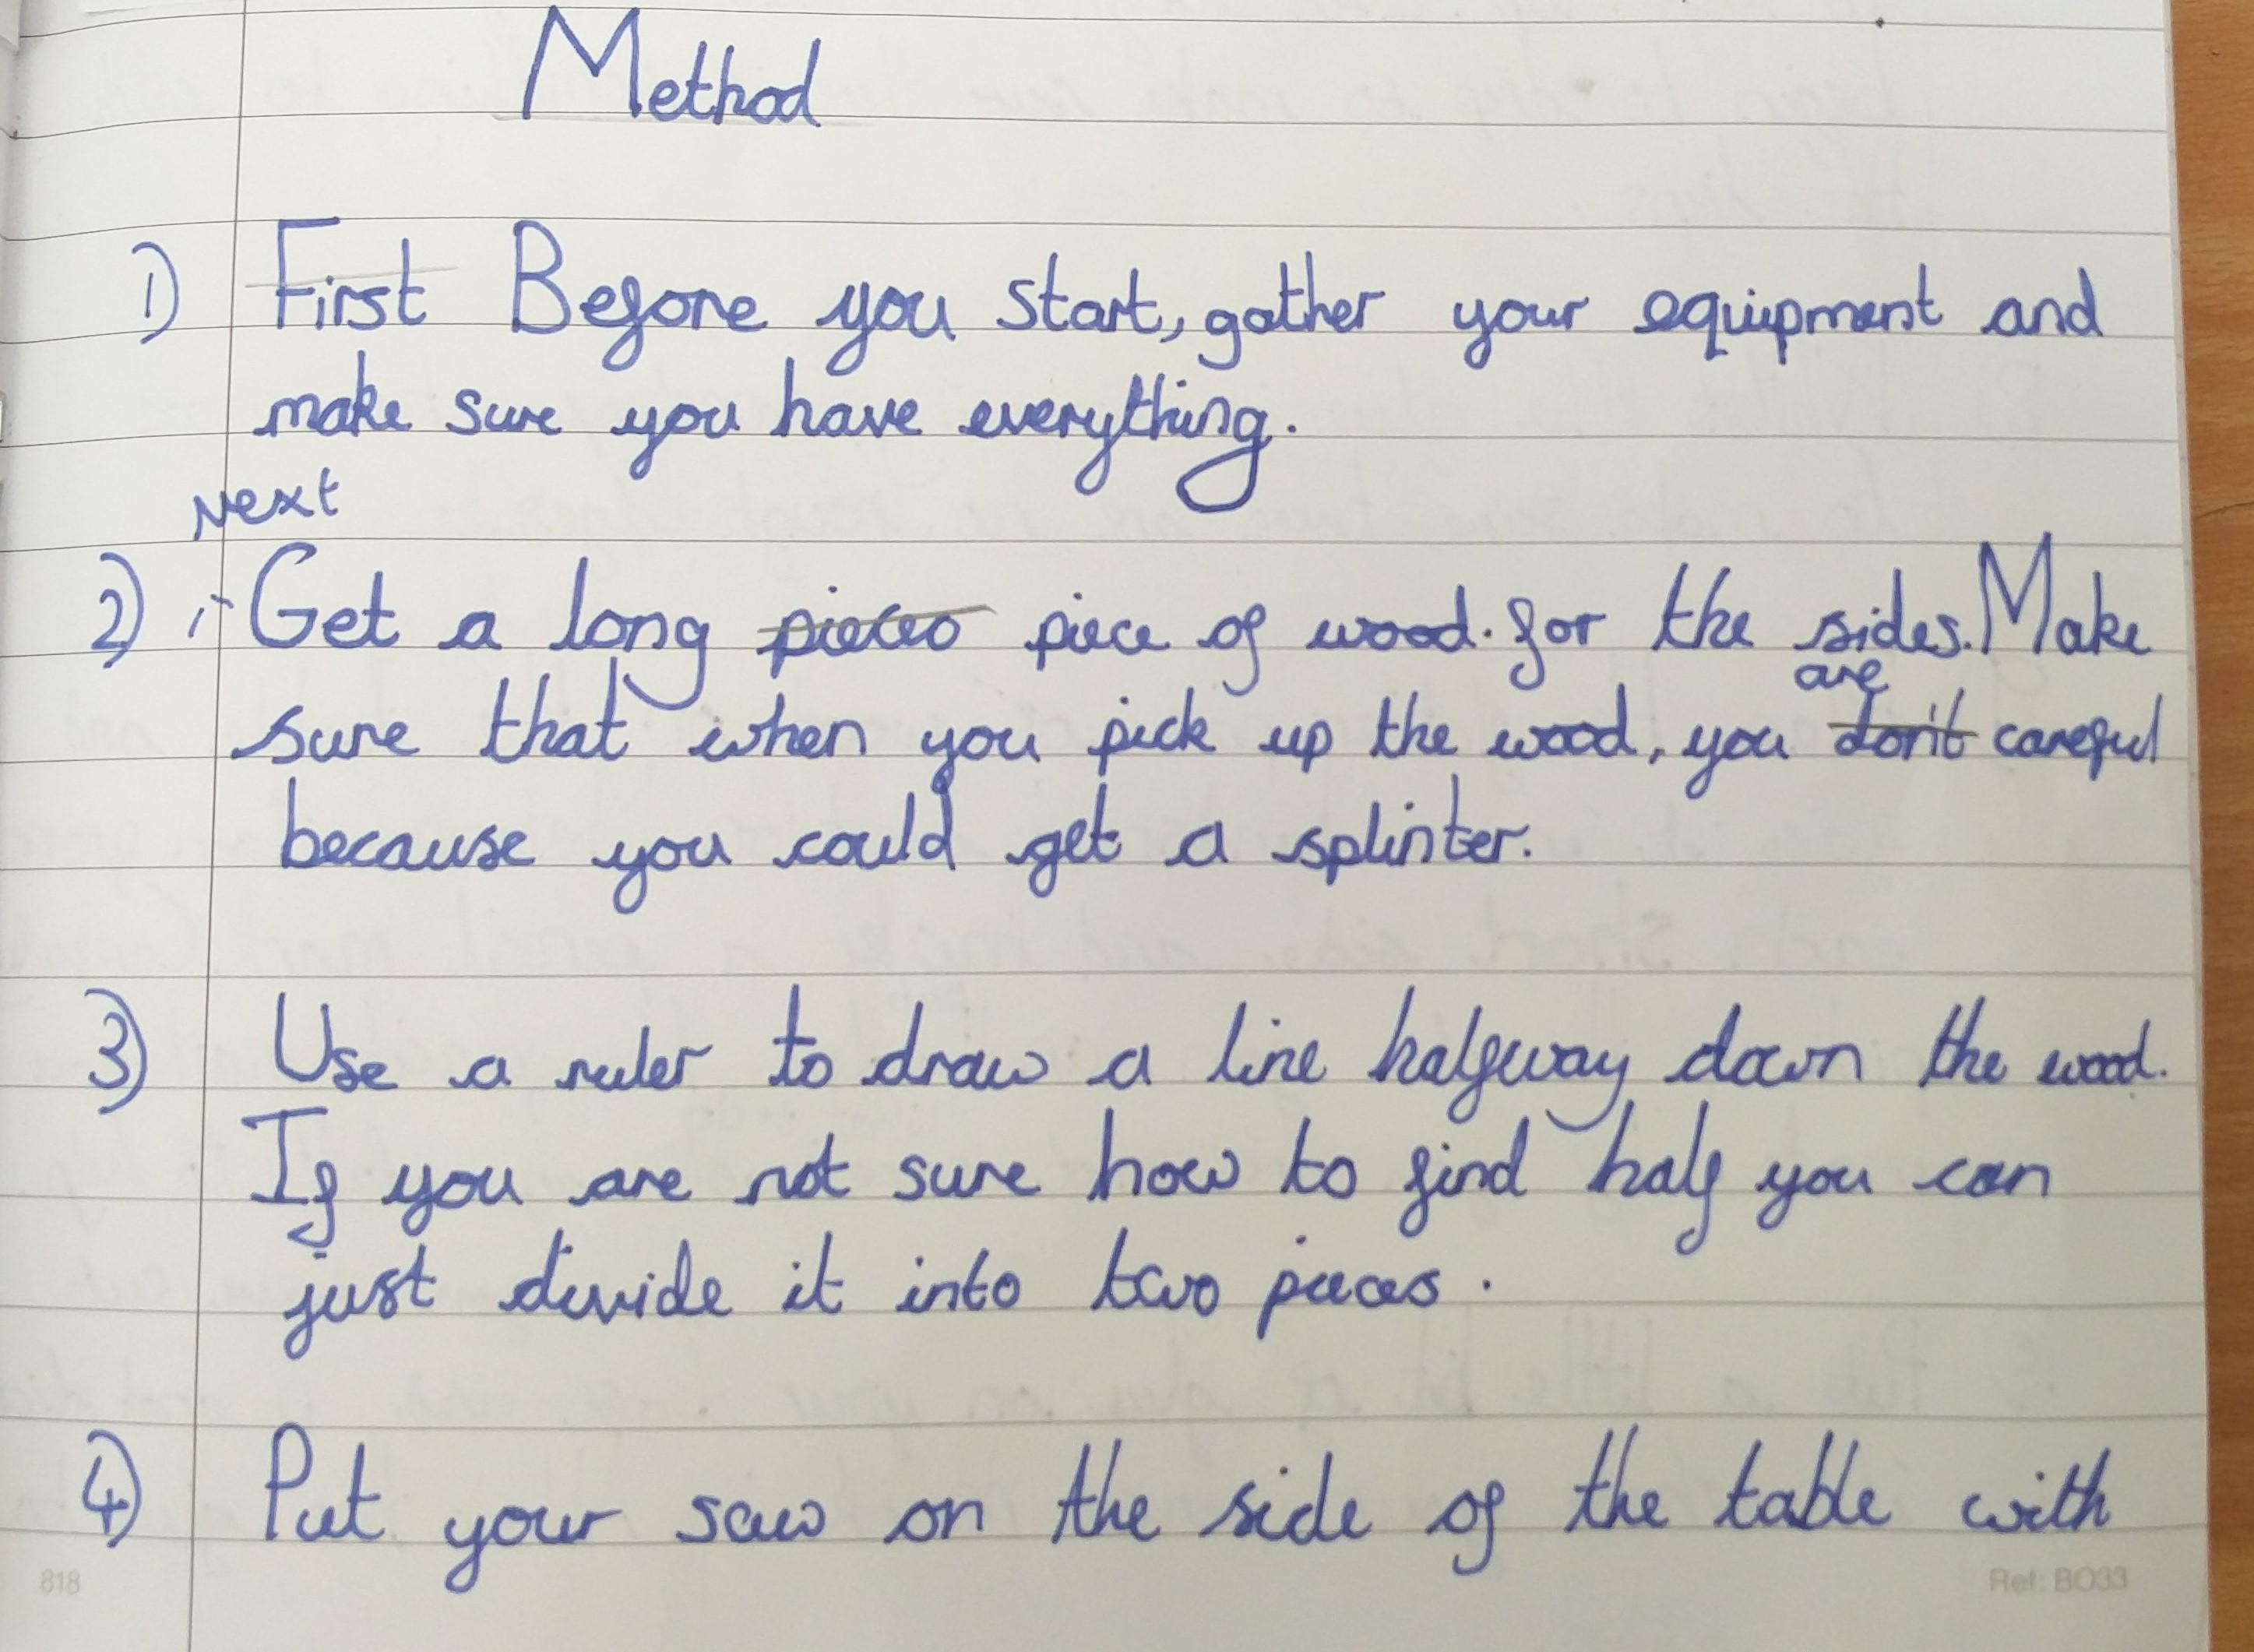 Method
1) First Before you start, gather your equipment and
make sure you have everything.
Next
2) Get a long pieces piece of wood. for the sides. Make
are
sure that when you pick up the wood, you don't careful
because you could get a splinter.
3) Use a ruler to draw a line halfway down the wood.
If you are not sure how to find half you can
just divide it into two pieces.
4) Put your saw on the side of the table with
818 Ref: BO33